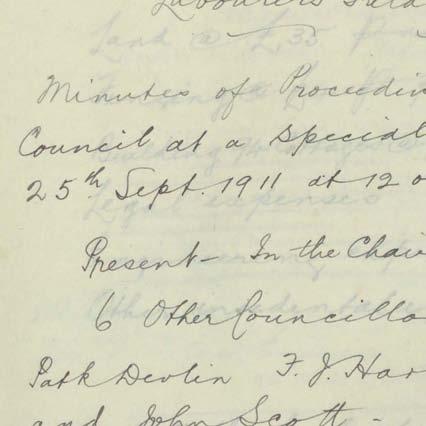 Labourers
Minutes of Proceedin
Council at a Special
25th Sept. 1911 at 12 o
Present - In the Chai
6 Other Councillo
Patk Devlin F. J. Har
and John Scott -